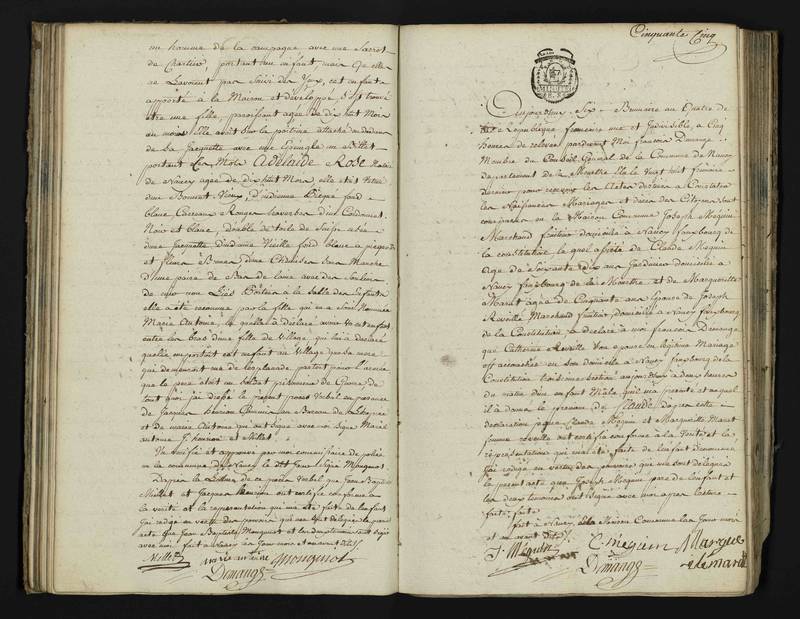 un homme de la campagne avec une Sarrot
de Chartier, portant un enfant, mais qu'elle
ne Lavoient pas Suivi des Yeux, cet enfant
apporté à la Maison et développé, S'est trouvé
être une fille, paroissant agée de dix huit Mois
au moins elle avoit Sur la poitrine attaché au dedans
de Sa Jacquette avec une Epingle un Billet
portant Ces Mots Adelaïde Rose
de Nancy agée de dix huit Mois elle etoit Vetue
d'un Bonnet d'indienne Piequé fond
blanc Carreaux Rouges
Noir et blanc, double de toile de
d'une Jacquette d'indienne Vieille fond blanc
et fleurs d'une Chemise Sans Manche
d'une paire de Bas de laine avec des Souliers
de cuir à la Salle des Enfants
elle a été reconnue par la fille qui en a Soin Nommée
Marie Antoine, laquelle a déclaré avoir Vu cet enfant
entre les bras d'une fille de Village, qui lui a déclaré
qu'elle emportoit cet enfant au Village que Sa mere
qui demeuroit rue de l'esplanade, partoit pour l'armée
que le pere étoit un Soldat prisonnier de Guerre de
tout quoi j'ai dressé le present procès Verbal en presence
de Jacques Henrion Commis au Bureau de
et de marie Antoine qui ont Signé avec moi Signé Marie
antoine J. henrion et Millet.
Vu Verifié et approuvé par moi commissaire de police
de la commune de Nancy le dit Jour Signé Mougenot
D'apres la Lecture de ce procès Verbal que Jean Baptiste
Millet et Jacques Henrion ont certifié conforme à
la verité et la representation qui m'a été faite de l'enfant
J'ai redigé en vertu des pouvoirs qui me sont delegués le present
acte que Jean Baptiste Mougenot et les deux temoins ont Signé
avec moi fait à Nancy les Jour mois et an avant dits.
Millet marie antoine Mongenot
Demange
Cinquante Cinq
Aujourd'huy Six Brumaire an Quatre de
la Republique francaise une et Indivisible, à Cinq
heures de relevée pardevant Moi francois Demange
Membre du Conseil General de la Commune de Nancy
departement de la Meurthe Elu le Vingt huit frimaire
dernier pour recevoir les Actes destinés à Constater
les Naissances Mariages et deces des Citoyens, est
comparu en la Maison Commune Joseph Mequin
Marchand fruitier domicilié à Nancy fauxbourg de
la constitution, le quel assisté de Claude Mequin
agé de Soixante dix ans Jardinier domicilié à
Nancy fauxbourg de la Meurthe et de Marguerite
Maret agée de Cinquante ans Epouse de Joseph
Reveillé Marchand fruitier, domiciliée à Nancy fauxbourg
de la Constitution, a declaré à moi francois Demange
que Catherine Reveillé Son Epouse en legitime Mariage
est accouchée en son domicile à Nancy fauxbourg de la
Constitution troisieme Section, aujourd'huy à deux heures
du matin d'un Enfant Male qu'il m'a presenté et auquel
il a donné le prenom de Claude, d'apres cette
declaration que Claude Mequin et Marguerite Maret
femme reveillé ont certifié conforme à la Verité, et la
representation qui m'a été faite de l'enfant denommé
J'ai redigé en vertu des pouvoirs qui me sont delegués
le present acte que Joseph Mequin pere de l'enfant et
les deux temoins ont Signé avec moi apres lecture
faite.
fait à Nancy en la Maison Commune les Jour mois
et an avant dits.
J. Méquin C. mequin Margue
rite maret
Demange